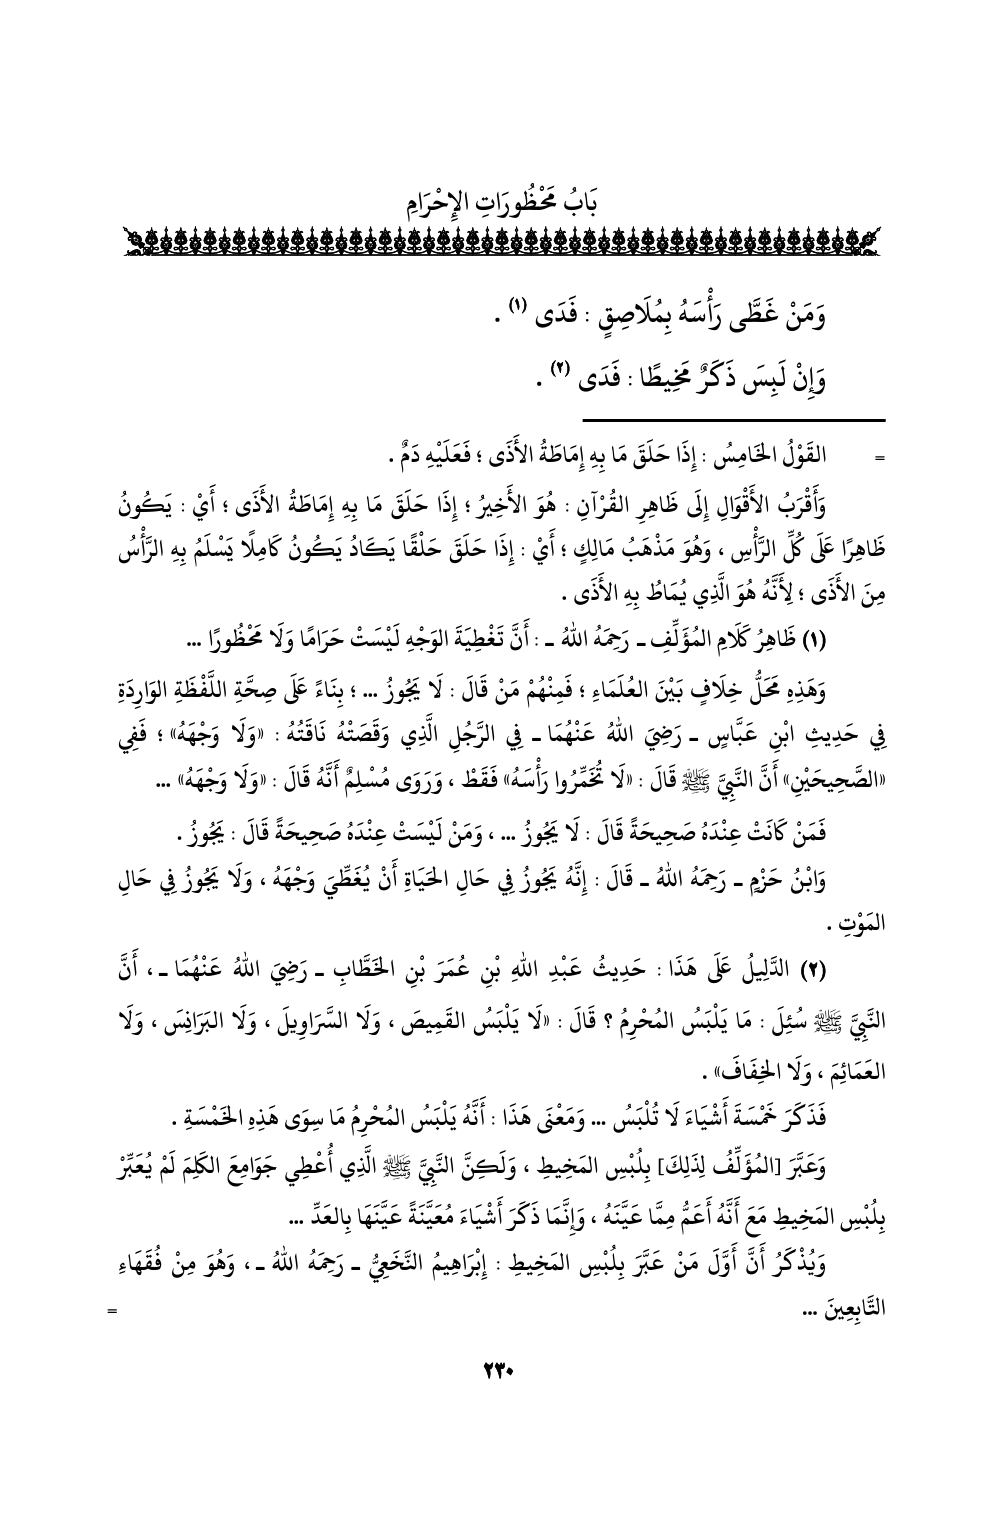 بَابُ مَحْظُورَاتِ الإِحْرَامِ
وَمَنْ غَطَّى رَأْسَهُ بِمُلَاصِقٍ : فَدَى (١) .
وَإِنْ لَبِسَ ذَكَرٌ مَخِيطًا : فَدَى (٢) .
= القَوْلُ الخَامِسُ : إِذَا حَلَقَ مَا بِهِ إِمَاطَةُ الأَذَى ؛ فَعَلَيْهِ دَمٌ .
وَأَقْرَبُ الأَقْوَالِ إِلَى ظَاهِرِ القُرْآنِ : هُوَ الأَخِيرُ ؛ إِذَا حَلَقَ مَا بِهِ إِمَاطَةُ الأَذَى ؛ أَيْ : يَكُونُ
ظَاهِرًا عَلَى كُلِّ الرَّأْسِ ، وَهُوَ مَذْهَبُ مَالِكٍ ؛ أَيْ : إِذَا حَلَقَ حَلْقًا يَكَادُ يَكُونُ كَامِلًا يَسْلَمُ بِهِ الرَّأْسُ
مِنَ الأَذَى ؛ لِأَنَّهُ هُوَ الَّذِي يُمَاطُ بِهِ الأَذَى .
(١) ظَاهِرُ كَلَامِ المُؤَلِّفِ ـ رَحِمَهُ اللهُ ـ : أَنَّ تَغْطِيَةَ الوَجْهِ لَيْسَتْ حَرَامًا وَلَا مَحْظُورًا ...
وَهَذِهِ مَحَلُّ خِلَافٍ بَيْنَ العُلَمَاءِ ؛ فَمِنْهُمْ مَنْ قَالَ : لَا يَجُوزُ ... ؛ بِنَاءً عَلَى صِحَّةِ اللَّفْظَةِ الوَارِدَةِ
فِي حَدِيثِ ابْنِ عَبَّاسٍ ـ رَضِيَ اللهُ عَنْهُمَا ـ فِي الرَّجُلِ الَّذِي وَقَصَتْهُ نَاقَتُهُ : «وَلَا وَجْهَهُ» ؛ فَفِي
«الصَّحِيحَيْنِ» أَنَّ النَّبِيَّ ﷺ قَالَ : «لَا تُخَمِّرُوا رَأْسَهُ» فَقَطْ ، وَرَوَى مُسْلِمٌ أَنَّهُ قَالَ : «وَلَا وَجْهَهُ» ...
فَمَنْ كَانَتْ عِنْدَهُ صَحِيحَةً قَالَ : لَا يَجُوزُ ... ، وَمَنْ لَيْسَتْ عِنْدَهُ صَحِيحَةً قَالَ : يَجُوزُ .
وَابْنُ حَزْمٍ ـ رَحِمَهُ اللهُ ـ قَالَ : إِنَّهُ يَجُوزُ فِي حَالِ الحَيَاةِ أَنْ يُغَطِّيَ وَجْهَهُ ، وَلَا يَجُوزُ فِي حَالِ
المَوْتِ .
(٢) الدَّلِيلُ عَلَى هَذَا : حَدِيثُ عَبْدِ اللهِ بْنِ عُمَرَ بْنِ الخَطَّابِ ـ رَضِيَ اللهُ عَنْهُمَا ـ ، أَنَّ
النَّبِيَّ ﷺ سُئِلَ : مَا يَلْبَسُ المُحْرِمُ ؟ قَالَ : «لَا يَلْبَسُ القَمِيصَ ، وَلَا السَّرَاوِيلَ ، وَلَا البَرَانِسَ ، وَلَا
العَمَائِمَ ، وَلَا الخِفَافَ» .
فَذَكَرَ خَمْسَةَ أَشْيَاءَ لَا تُلْبَسُ ... وَمَعْنَى هَذَا : أَنَّهُ يَلْبَسُ المُحْرِمُ مَا سِوَى هَذِهِ الخَمْسَةِ .
وَعَبَّرَ [المُؤَلِّفُ لِذَلِكَ] بِلُبْسِ المَخِيطِ ، وَلَكِنَّ النَّبِيَّ ﷺ الَّذِي أُعْطِي جَوَامِعَ الكَلِمَ لَمْ يُعَبِّرْ
بِلُبْسِ المَخِيطِ مَعَ أَنَّهُ أَعَمُّ مِمَّا عَيَّنَهُ ، وَإِنَّمَا ذَكَرَ أَشْيَاءَ مُعَيَّنَةً عَيَّنَهَا بِالعَدِّ ...
وَيُذْكَرُ أَنَّ أَوَّلَ مَنْ عَبَّرَ بِلُبْسِ المَخِيطِ : إِبْرَاهِيمُ النَّخَعِيُّ ـ رَحِمَهُ اللهُ ـ ، وَهُوَ مِنْ فُقَهَاءِ
التَّابِعِينَ ... =
٢٣٠